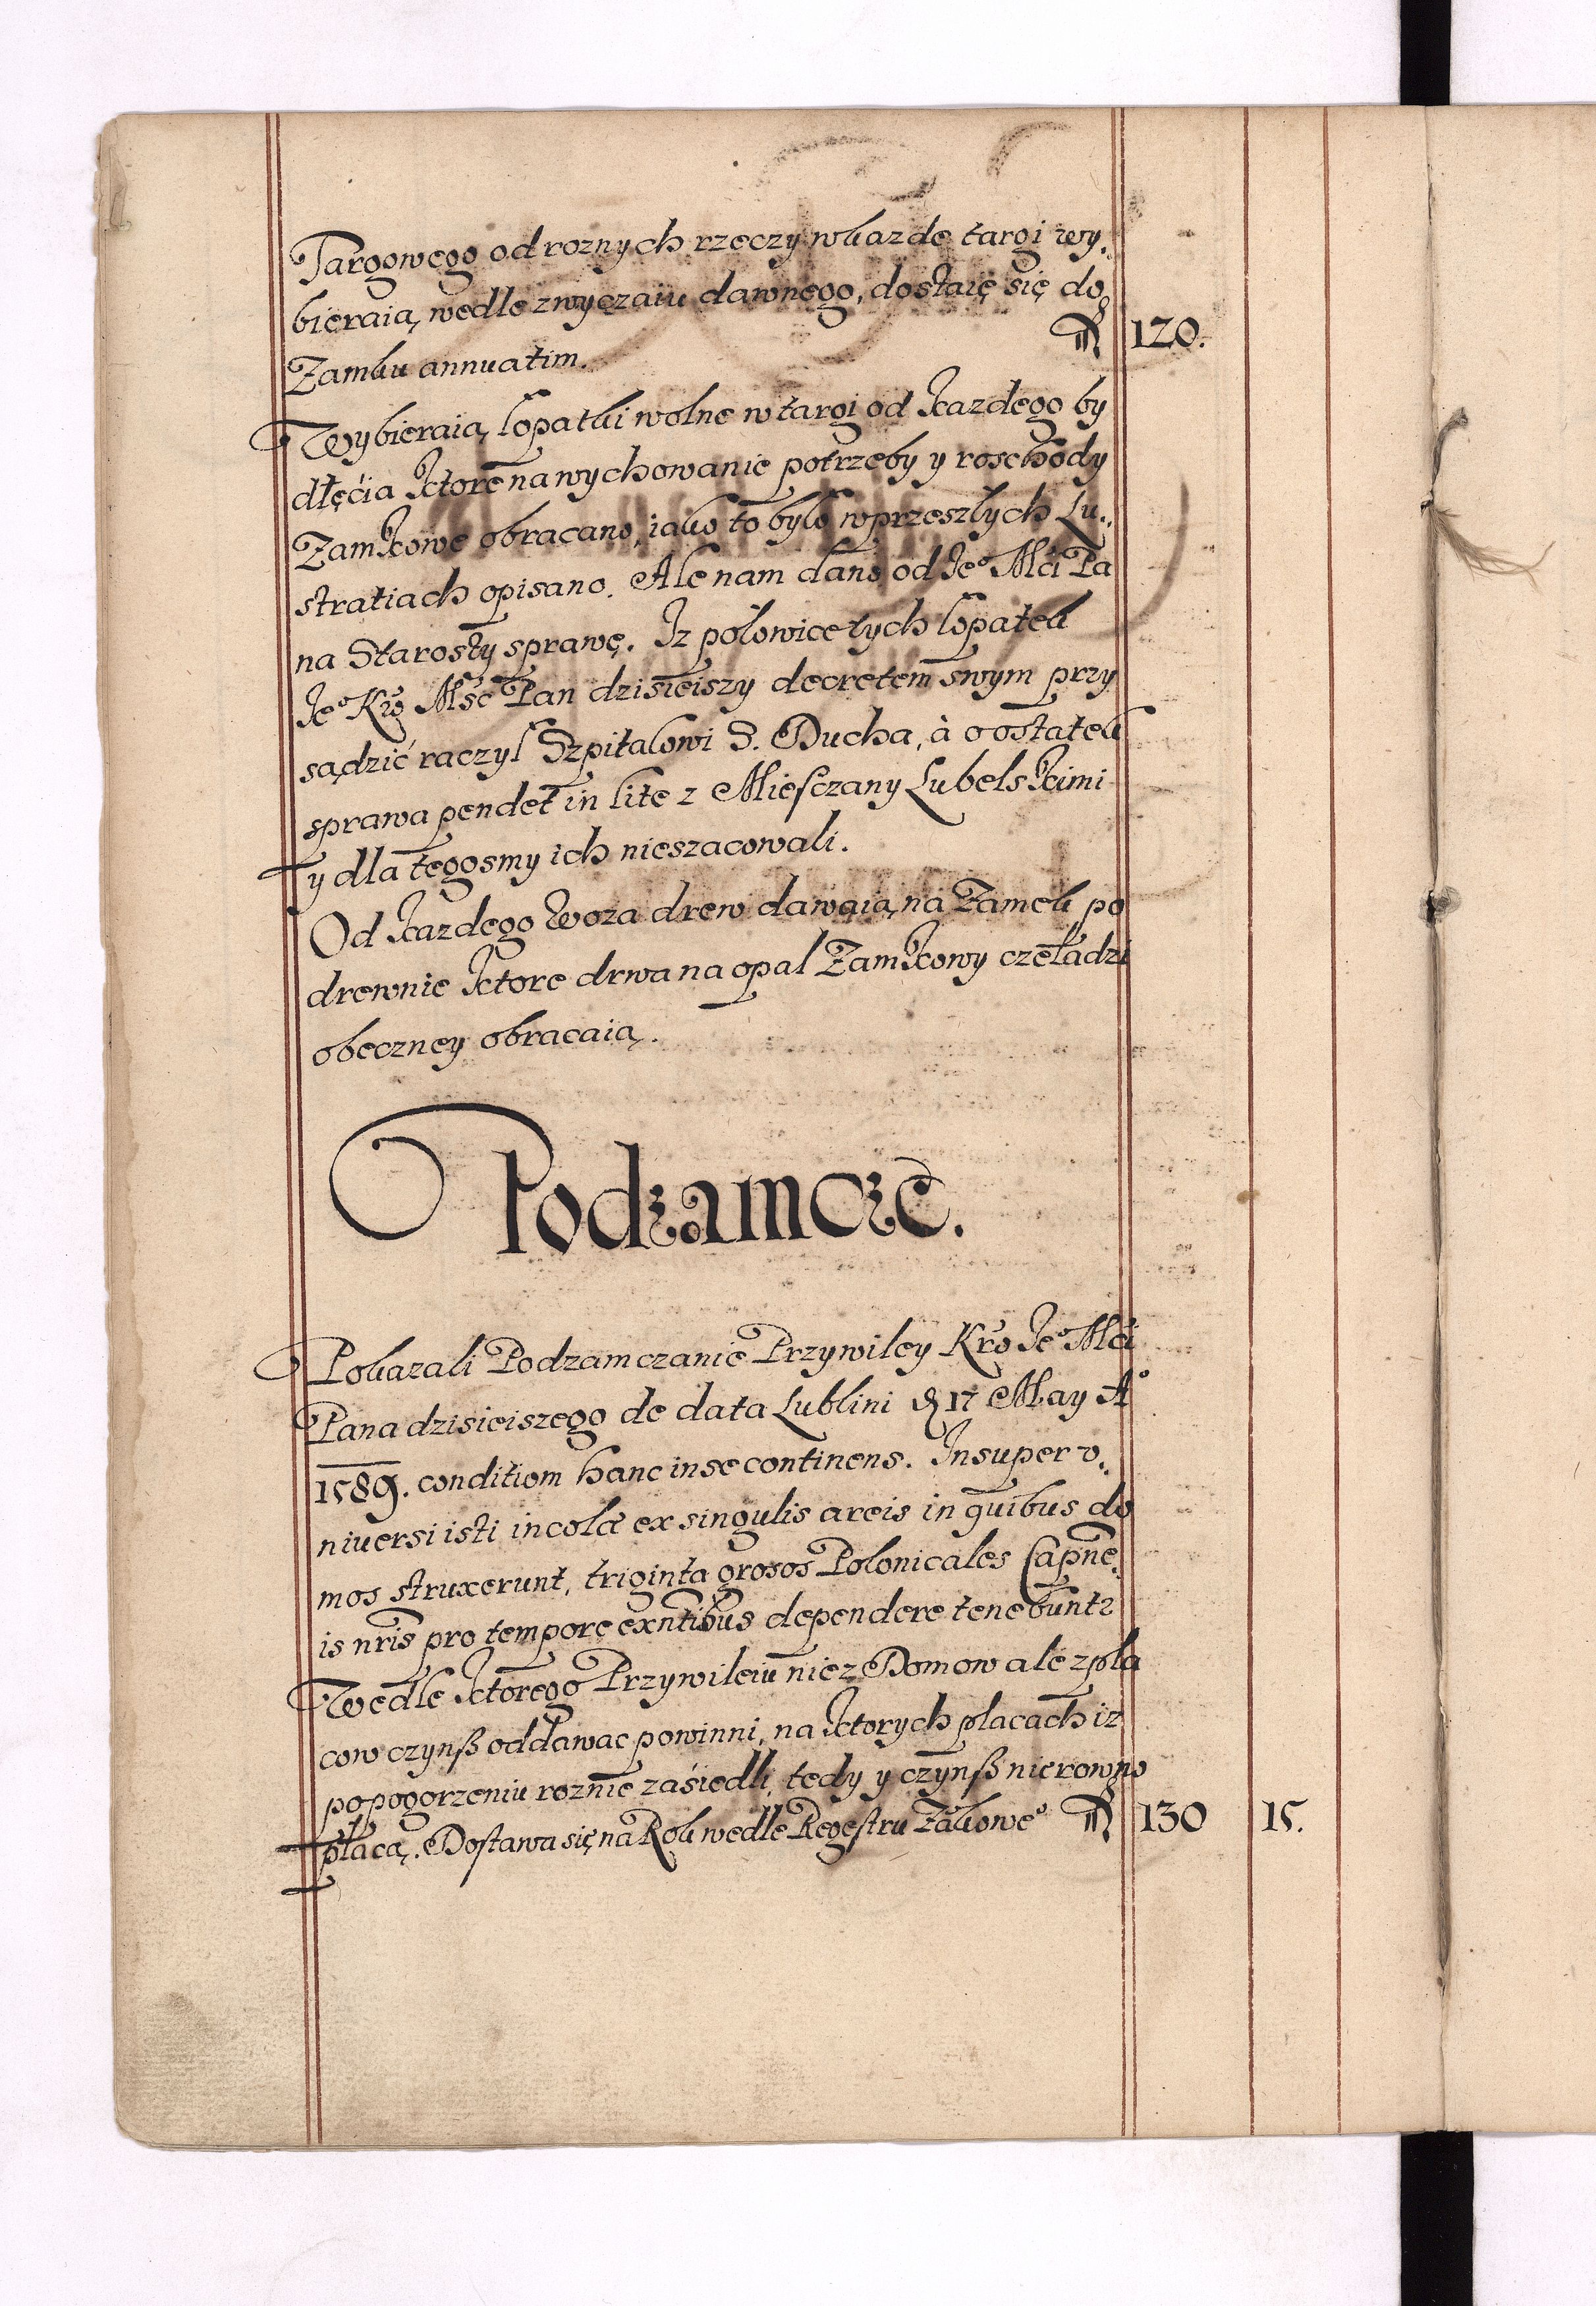 Targowego od roznych rzeczy wkazde targi wy,,
bieraią, wedle zwyczaiu dawnego, dostaię się do
Zamku annuatim. 120.
Wybieraią łopatki wolne w targi od kazdego by
dłęćia ktore na wychowanie potrzeby y roschody
Zamkowe obracano, iako to było w przeszłych Lu,,
stratiach opisano. Ale nam dano od Je° Mći Pa
na Starosty sprawę. Iz połowice tych łopatek
Je° Kro Mść Pan dzisieiszy decretem swym przy
sądzić raczył Szpitalowi S. Ducha, à o ostatek
sprawa pendet in lite z Miesczany Lubelskimi
y dla tegosmy ich nieszacowali.
Od kazdego woza drew dawaią na Zamek po
drewnie ktore drwa na opał Zamkowy czeladzi
obeczney obracaią.
Podzamcze.
Pokazali Podzamczanie Przywiley Kro Je° Mći
Pana dzisieiszego de data Lublini 17 May A°
1589. conditiom hanc in se continens. Insuper v,,
niuersi isti incolæ ex singulis areis in quibus do
mos struxerunt, triginta grosos Polonicales Capne,,
is nris pro tempore exntibus dependere tenebunt2
Wedle ktorego Przywileiu nie z Domow ale z pla
cow czynß oddawac powinni, na ktorych placach iz
po pogorzeniu roznie zásiedli, tedy y czynß nierowno
płacą. Dostawa się na Rok wedle Regestru Zakowe° 130 15.